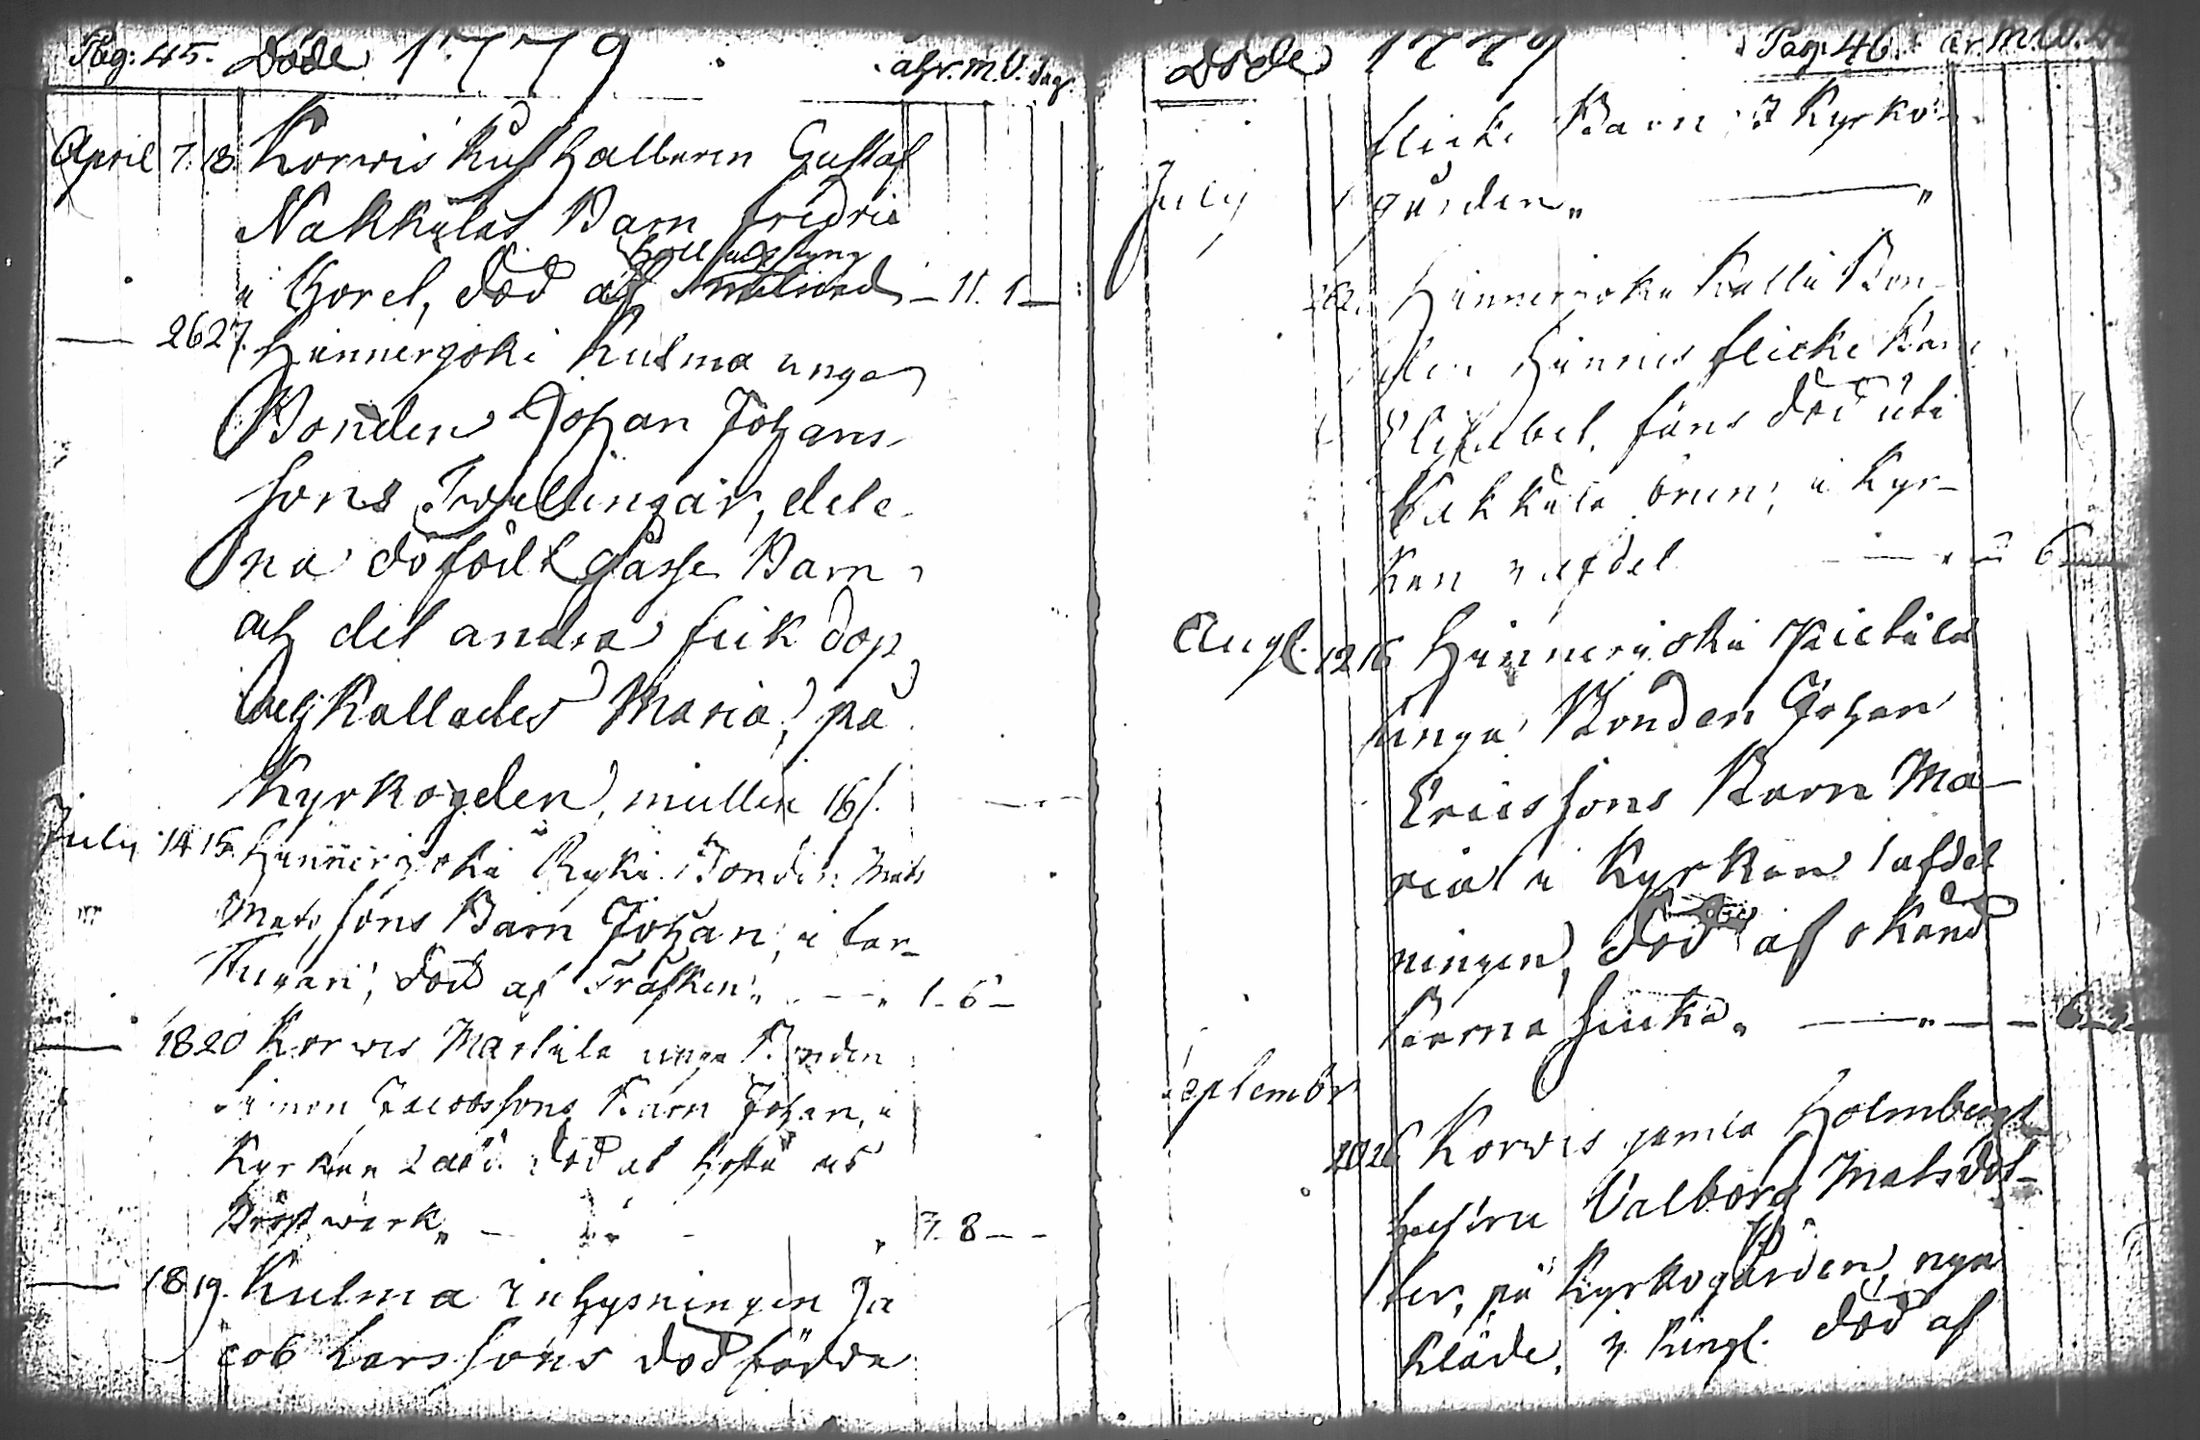 Pag: 45. Döde 1779 åhr. m. V. dag
April 7. 18. Korwis Rusthålleren Gustaf
Nakkilas Barn Fredric
i Choret, död af håll och styng — 11. 1 —
— 26 27. Hinnerjoki Kulma unga
Bonden Johan Johans-
sons Twillingar, dets
ena dödfödt gåsse Barn
och det andra feck dop
och kallades Maria, på
Kyrkogden, mullen 16 s.
July 14 15. Hinnerjoki Ryki Bonden Mats
Matssons Barn Johan, i far-
stugan, död af Trasken „ — „ 1 - 6 —
— 18 20 Korwis Martila unga Bonden
Simon Jacobssons Barn Johan, i
Kyrkan 2 afd. död af hosta och
Bröstwärk „ — „ 3 - 8 — —
— 18 19. Kulma Inhysningen Ja
cob Larssons dödfödda
Döde 1779 Pag: 46. år. m. V. d
flicke Barn i Kyrko-
July gården „ — „
Hinnerjoki Kalli Bon-
den Hinrics flicke Barn
Elisabet, fans död uti
Kakkula brun, i Kyr-
kan 3 afdel — „ — 6 —
Augt. 12 16 Hinnerjoki Pietilä
unga Bonden Johan
Ericssons Barn Ma-
ria i Kyrkan 1 afdel
ningen, död af okänd
barna siuka „ — „ — 6 —
September
20 26 Korwis gamla Holmbergs
hustru Valborg Matsdot-
ter, på Kyrkogården, nya
kläde, 3 Ringl. död af